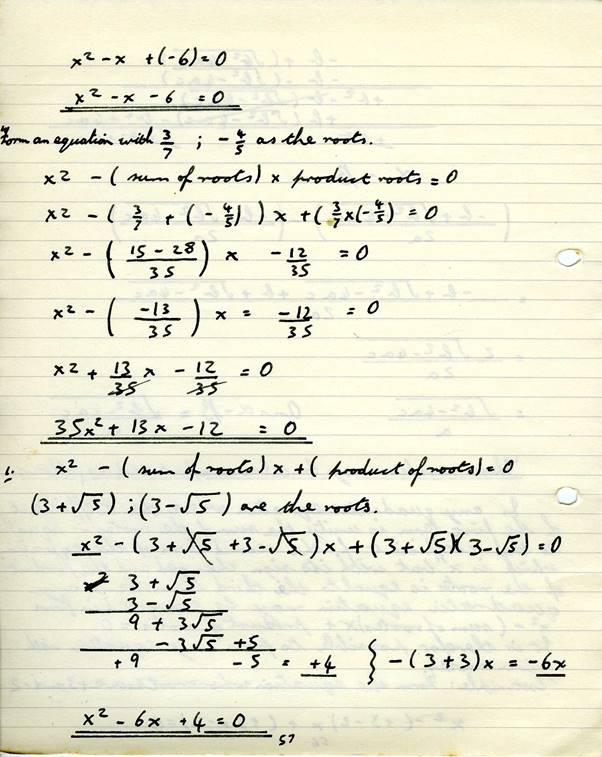 x² - x + (-6) = 0
x² - x - 6 = 0
Form an equation with 3/7 ; - 4/5 as the roots.
x² - ( sum of roots ) x product roots = 0
x² - ( 3/7 + ( - 4/5 ) ) x + ( 3/7 x (- 4/5 ) = 0
x² - ( 15 - 28 / 35 ) x - 12/35 = 0
x² - ( -13 / 35 ) x = - 12/35 = 0
x² + 13/35 x - 12/35 = 0
35x² + 13x - 12 = 0
1. x² - ( sum of roots ) x + ( product of roots ) = 0
(3 + √5 ) ; (3 - √5 ) are the roots.
x² - (3 + √5 + 3 - √5 ) x + (3 + √5)(3 - √5) = 0
x² 3 + √5
3 - √5
9 + 3√5
- 3√5 + 5
+ 9 - 5 = +4 } - (3 + 3) x = - 6x
x² - 6x + 4 = 0
57